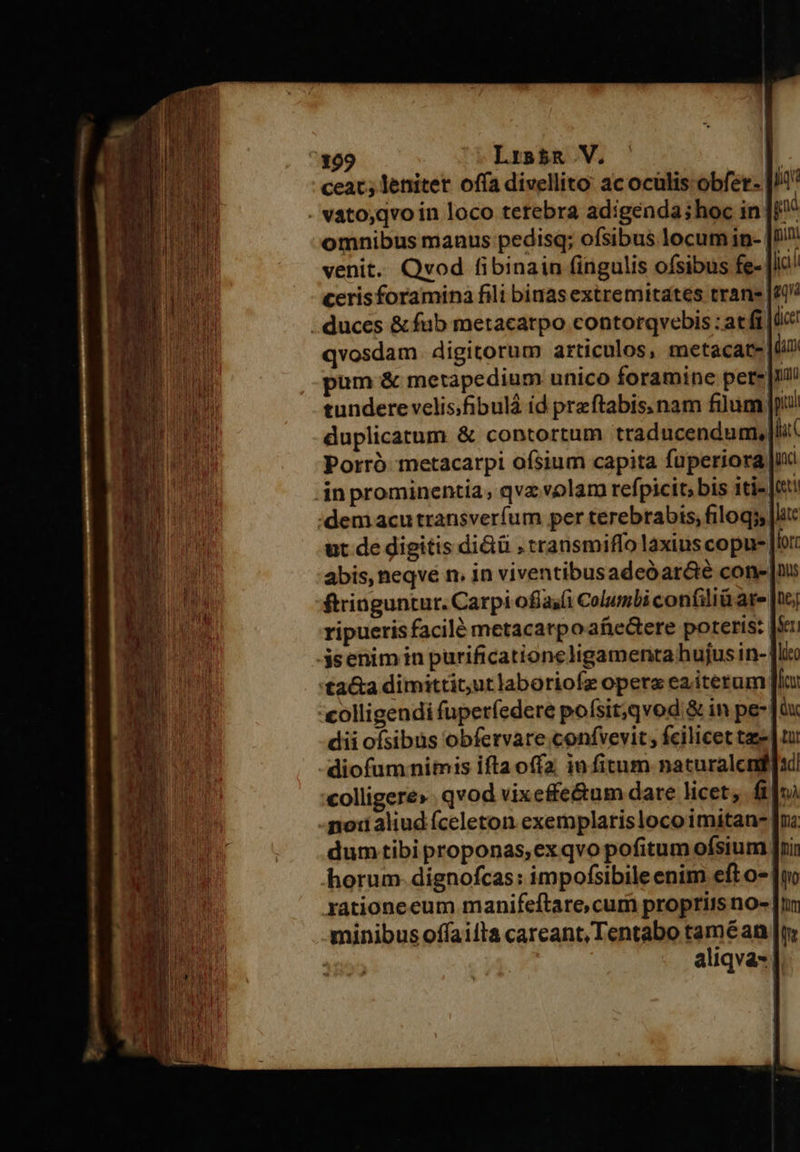 199 LIBER V.
ceat, leniter ossa divellito ac oculis obser-
vato, qvo in loco terebra adigenda; hoc in
omnibus manus pedisq; ossibus locum in-
venit. Qvod si bina in singulis ossibus fe-
ceris foramina fili binas extremitates trans-
duces & sub metacarpo contorqvebis: at si
qvosdam digitorum articulos, metacar-
pum & metapedium unico foramine per-
tundere velis, fibulâ id præstabis, nam filum
duplicatum & contortum traducendum,
Porrò metacarpi ossium capita superiora
in prominentia, qvæ volam respicit, bis iti-
dem acu transversum per terebrabis, filoq;,
ut de digitis dictũ, transmisso laxius copu-
abis, neqve n. in viventibus adeò arctè con-
stringuntur. Carpi ossa, si Columbi consiliũ ar-
ripueris facilè metacarpo añectere poteris:
is enim in purificatione ligamenta hujus in-
tacta dimittit, ut laboriosæ operæ ea iterum
colligendi supersedere possit, qvod & in pe-
dii ossibus observare consvevit, scilicet tæ-
diosum nimis ista ossa in situm naturalem
colligere, qvod vix effectum dare licet, si
non aliud sceleton exemplaris loco imitan-
dum tibi proponas, ex qvo positum ossium
horum dignoscas: impossibile enim est o-
ratione eum manifestare, cum propriis no-
minibus ossa ista careant, Tentabo tamẽ an
aliqva-